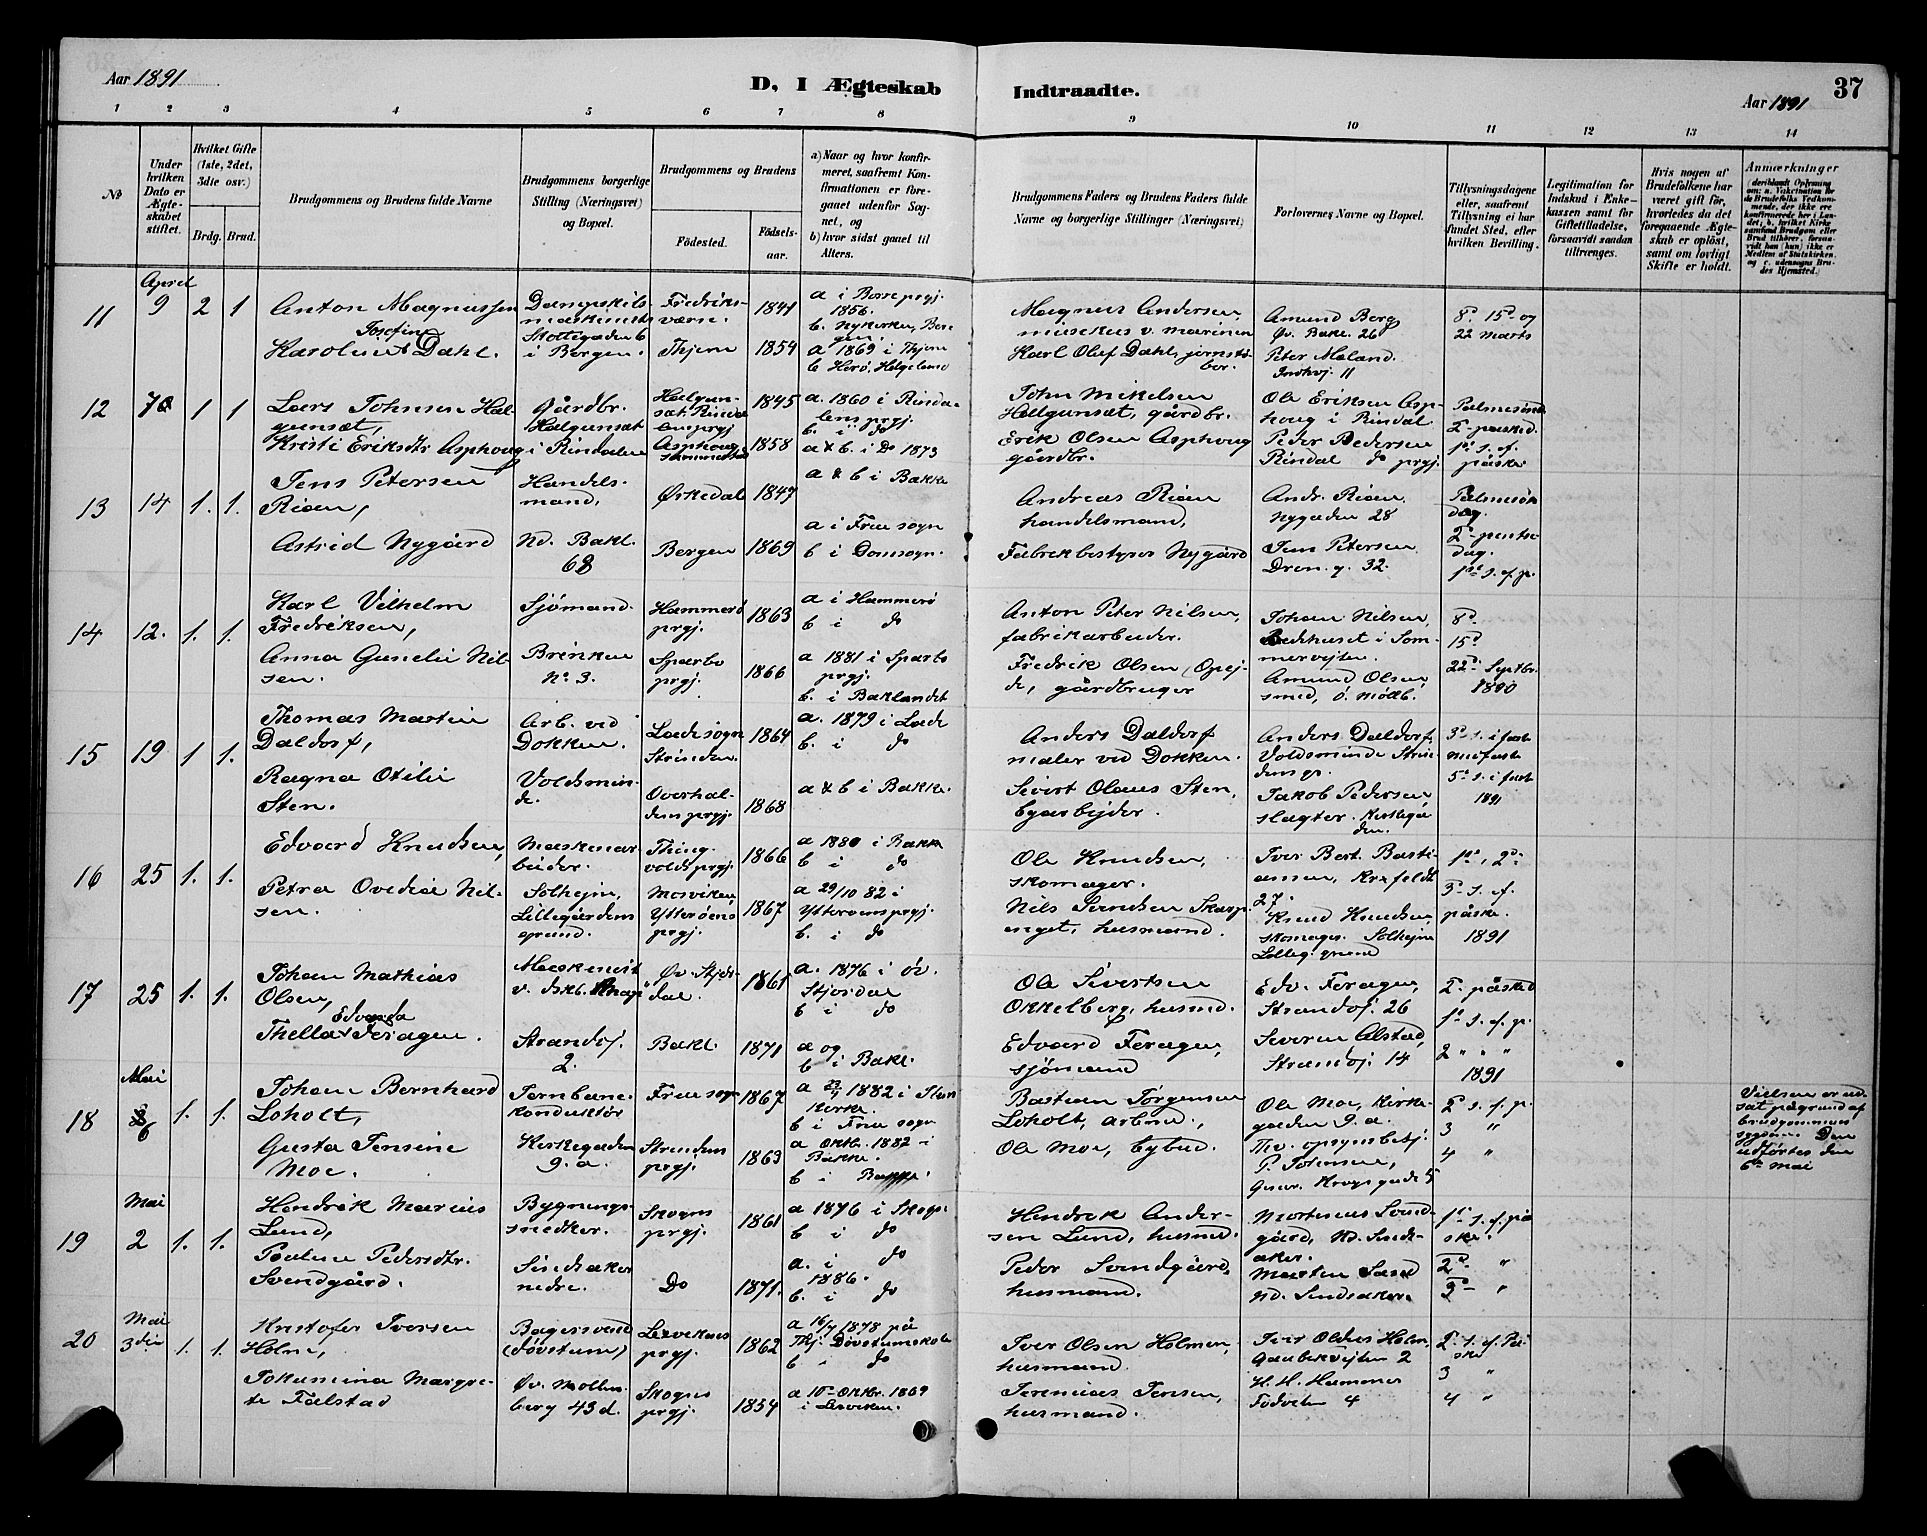 Aar 1891
D, I Ægteskab Indtraadte.
Aar 1891
37
1 2 3 4 5 6 7 8 9 10 11 12 13 14
No
Under hvilken Dato er Ægteskabet stiftet.
Hvilket Gifte (1ste, 2det, 3die osv.)
Brdg. Brud.
Brudgommens og Brudens fulde Navne
Brudgommens borgerlige Stilling (Næringsvei) og Bopæl.
Brudgommens og Brudens
Fødested.
Fødselsaar.
a) Naar og hvor konfirmeret, saafremt Konfirmationen er foregaaet udenfor Sognet, og
b) hvor sidst gaaet til Alters.
Brudgommens Faders og Brudens Faders fulde Navne og borgerlige Stillinger (Næringsvei)
Forlovernes Navne og Bopæl.
Tillysningsdagene eller, saafremt Tillysning ei har fundet Sted, efter hvilken Bevilling.
Legitimation for Indskud i Enkekassen samt for Giftetilladelse, forsaavidt saadan tiltrænges.
Hvis nogen af Brudefolkene har været gift før, hvorledes da det foregaaende Ægteskab er opløst, samt om lovligt Skifte er holdt.
Anmærkninger
11 April 9 2 1
Anton Magnussen
Josefine
Karoline Dahl.
Dampskibsmaskinists
Skottegaden 6
i Bergen.
Fredriksværn. 1841
Thjem 1854
a i Borre prgj.
1856.
b. Nykirken, Bergen.
a 1869 i Thjem
b Herø, Helgeland
Magnus Andersen,
musikus v. marinen
Karl Oluf Dahl, jernstøber.
Amund Berg
Øv. Bakl. 26
Peter Mæland.
8d. 15d. og
22 Marts
12 1 1
Lars Johnsen Halgunsæt,
Kristi Eriksdtr Asphoug
Gårdbr.
Halgunsæt
i Rindalen
Halgunsæt, Rindalens prgj
Asphoug
1845
1858
a. 1860 i Rindalens prgj.
b. i do
a & b. i Do 1873
John Mikelsen
Halgunsæt, gårdbr.
Erik Olsen Asphoug
gårdbr.
Ole Eriksen Asphoug i Rindal
Peder Pedersen
Rindal do prgj.
Palmesønd.
2. påsked.
1ste s. ef.
påske
13 14 1. 1.
Jens Petersen
Rian,
Astrid Nygård
Handelsmand,
Nd. Bakl.
68
Ørkedal 1847
Bergen 1869
a & b i Bakke
a i Frue sogn
b i Domsogn.
Andreas Rian
handelsmand,
Fabrikbestyrer Nygård
Andr. Rian
Nygaden 28
Jens Petersen
Dron. g. 32.
Palmesøndag.
1ste s. ef. p.
14 12. 1. 1.
Karl Vilhelm
Fredriksen,
Anna Gunelie Nilsen.
Sjømand.
Brinken
No 3.
Hammerø
prgj.
Sparbo
prgj.
1863
1866
a i Hammerø
b i do
a 1881 i Sparbo
prgj.
b. i Baklandet
Anton Peter Nilsen,
fabrikarbeider.
Fredrik Olsen
gårdbruger
Johan Nilsen,
Amund Olsen,
smed, ø. Mollb.
8d.
15d
22d Septbr.
1890
15 19 1 1.
Thomas Martin
Daldorf,
Ragna Otilie
Sten.
Arb. ved
Dokken.
Voldsminde.
Ladesogn
Strinden.
Overhaldens prgj.
1864
1868
a. 1879 i Lade
b. i do
a & b i Bakke.
Anders Daldorf
maler ved Dokken.
Sivert Olaus Sten,
byarbejder.
Anders Daldorf
Voldsminde Strindens p.
Jakob Pedersen
slagter. Kirkegaden.
3d s. i fast
midfaste
5d s. i fast
1891
16 25 1. 1.
Edvard Knudsen,
Petra Ovedia Nilsen.
Maskinarbeider.
Solhejm,
Lillegårdens
grund.
Thingvolds prgj.
Mosviken,
Ytterøens
prgj.
1866
1867
a 1880 i Bakke
b i do
a 29/10 82 i
Ytterøens prgj.
b. i do
Ole Knudsen,
skomager.
Nils Svendsen
husmand.
Iver Bert. Bastiansen,
27.
Knud Knudsen,
skomager. Solhejm
Lilleg. grund
1ste, 2d.
3. s. ef.
påske.
1891
17 25 1. 1.
Johan Mathias
Olsen,
Edvarda
Thella Feragen.
Maskinist
Strandvj.
2.
Øv. Stjørdal.
Bakl.
1861
1871
a. 1876 i øv.
Stjørdal
b i do
a og
b i Bakl.
Ole Sivertsen
Okkelberg, husmd.
Edvard Feragen,
sjømand
Edv. Feragen,
Strandvj. 26
Severin Alstad,
Strandvj. 14
2. påsked
1ste s. ef. p.
2 " " "
1891
18 Mai 6 1. 1.
Johan Bernhard
Loholt,
Gusta Jensine
Moe.
Jernbanekonduktør
Kirkegaden
9. a.
Frue sogn
Strindens
prgj.
1867
1863
1882 i
Kirke.
b i Frue sogn
a Oktb. 1882 i
Bakke.
b i Bakke.
Bastian Jørgensen
Loholt, arbmd.,
Ole Moe, bybud.
Ole Moe, Kirkegaden 9. a.
P. Johnsen,
2 s. ef. p.
3 "
4 "
Vielsen er udsat pågrund af
brudgommens
sygdom. Den
udførtes den
6te mai
19 Mai 2 1. 1.
Hendrik Marius
Lund,
Paulina Pedersdtr.
Svendgård.
Bygningssnedker.
Sindsaker
nedre.
Skogns
prgj.
Do
1861
1871.
a 1876 i Skogn
b i do
a. i do
1886.
b. i do
Hendrik Andersen Lund, husmd.
Peder Svendgård,
husmand.
Martinus Svendgård, Nd. Sindsaker.
Martin Sand
Nd. Sindsaker.
1ste s. ef. påske.
2d. "
3d "
20 Mai 3die 1. 1.
Kristofer Iversen
Holm,
Jokumina Margrete Falstad
Bagersvend
(døvstum,)
Øv. Møllenberg 43 d.
Lexvikens
prgj.
Skogns
prgj.
1862
1854
a 16/7 1878 på
Thj. Døvstumskole
b i do
a 10. Oktbr. 1869
i Lexviken.
Iver Olsen Holmen,
husmand.
Jeremias Jensen,
husmand.
Iver Holm,
Gaubækvejten 2
H. H. Hammer
4
2. s. ef. Påske
3 "
4 "